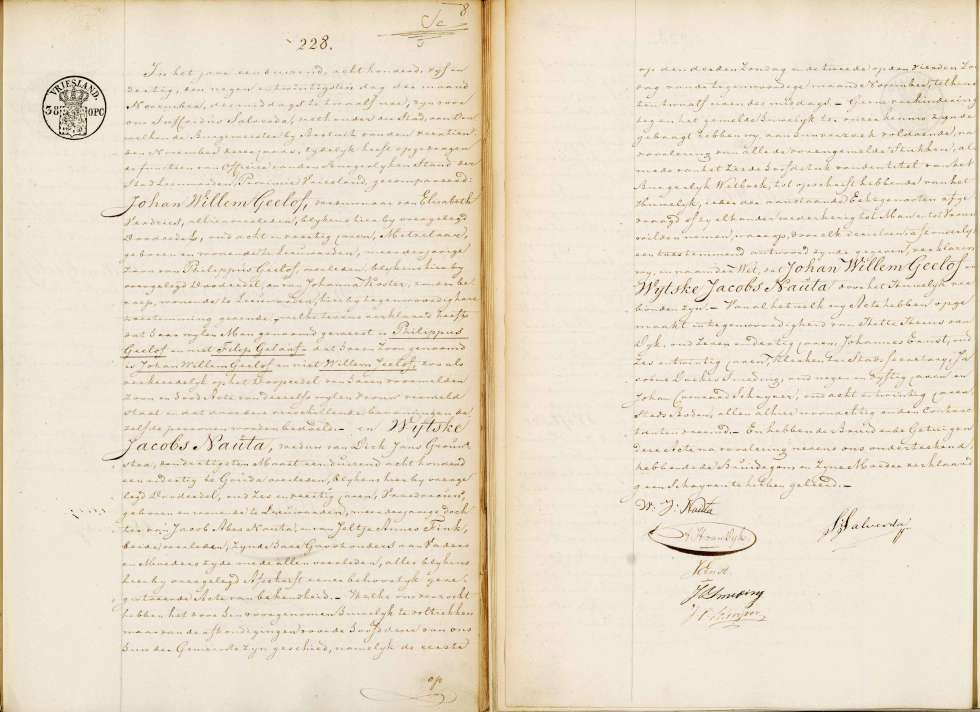 8
228.
VRIESLAND.
38 OPC
In het jaar een duizend, acht honderd, vyf en
dertig, den negen en twintigsten dag der maand
November, des middags te twaalf ure, zyn voor
ons Suffridus Salverda, wethouder der Stad, aan Ons
welken de Burgemeester by Besluit van den veertien
den November dezes jaars, tydelyk heeft opgedragen
de functien van Officier van den Burgerlyken Stand der
Stad Leeuwarden, Provincie Vriesland, gecompareerd:
Johan Willem Geelof, weduwnaar van Elisabeth
alhier overleden, blykens hier by overgelegd
Doodcedel, oud acht en veertig jaren, Metzelaar,
geboren en wonende te Leeuwarden, meerderjarige
Zoon van Philippus Geelof, overleden, blykens hier by
overgelegd Doodcedel, en van Johanna Koster, zonder be-
roep, wonende te Leeuwarden, hier by tegenwoordig hare
toestemming gevende, welke tevens verklaard heeft
dat haar wylen Man genaamd geweest is Philippus
Geelof en niet Filip Gelauf en dat haar Zoon genaamd
is Johan Willem Geelof en niet Willem Jeelof, zoo als
verkeerdelyk op het Doopcedel van haren voormelden
Zoon en Dood Acte van deszelfs wylen vrouw vermeld
staat en dat door deze verschillende benamingen de
zelfde personen worden bedoeld. – en Wytske
Jacobs Nauta, weduw van Dirk Jans Groun
stra, den dertigsten Maart een duizend acht honderd
een en dertig te Gouda overleden, blykens hier by overge
legd Doodcedel, oud zes en veertig jaren,
geboren en wonende te Leeuwarden, meerderjarige doch
ter van Jacob Abes Nauta en van Jeltje Annes Fink,
beide overleden, zynde hare Grootouders van Vaders
en Moeders zyde mede allen overleden, alles blykens
hier by overgelegd Afschrift eener behoorlyk gere-
gistreerde Acte van bekendheid. – Welke ons verzocht
hebben het voor hen voorgenomen Huwelyk te voltrekken
waarvan de afkondigingen voor de hoofddeur van ons
huis der Gemeente zyn geschied, namelyk de eerste
op
op den derden Zondag en de tweede op den vierden Zon
dag van de tegenwoordige maand November, telkens
ten twaalf uren des middags. – Geene verhindering
tegen het gemelde Huwelyk ter onzer kennis zynde
gebragt hebben wy, aan hun verzoek voldoende, na
voorlezing van alle de vorengemelde Stukken, als
mede van het zesde hoofdstuk van den titel van het
Burgerlyk Wetboek, tot opschrift hebbende van het
Huwelyk, ieder der aanstaande Echtgenooten afge
vraagd of zy elkander wederkeerig tot Man en tot Vrouw
wilden nemen, waarop, door elk derzelven afzonderlyk
een toestemmend antwoord zynde gegeven, verklaren
wy, en naam der Wet, dat Johan Willem Geelof en
Wytske Jacobs Nauta door het Huwelyk ver
bonden zyn. – Van al het welk wy Acte hebben opge
maakt in tegenwoordigheid van Thette Theunis van
Dyk, oud zeven en dertig jaren, Johannes Ernst, oud
zes en twintig jaren, Klerken ter Stads Secretary, Ja
cobus Doukes Smeding, oud negen en vyftig jaren en
Johan Coenraad Scheyver, oud acht en twintig jaren
Stads Boden, allen alhier woonachtig en den Contrac
tanten vreemd. – En hebben de Bruid en de Getuigen
deze Acte na voorlezing nevens ons onderteekend
hebbende de Bruidegom en zyne Moeder verklaard
geen Schryven te hebben geleerd. –
W: J: Nauta
T T van Dyk
S Salverda
J Ernst.
J D Smeding